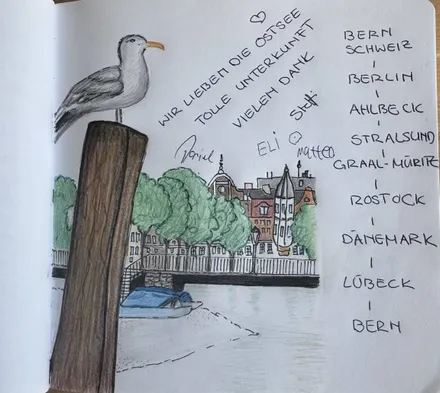 WIR LIEBEN DIE OSTSEE
TOLLE UNTERKUNFT
VIELEN DANK
Steffi
Daniel
ELI
Matteo
BERN
SCHWEIZ
BERLIN
AHLBECK
STRALSUND
GRAAL-MÜRITZ
ROSTOCK
DÄNEMARK
LÜBECK
BERN